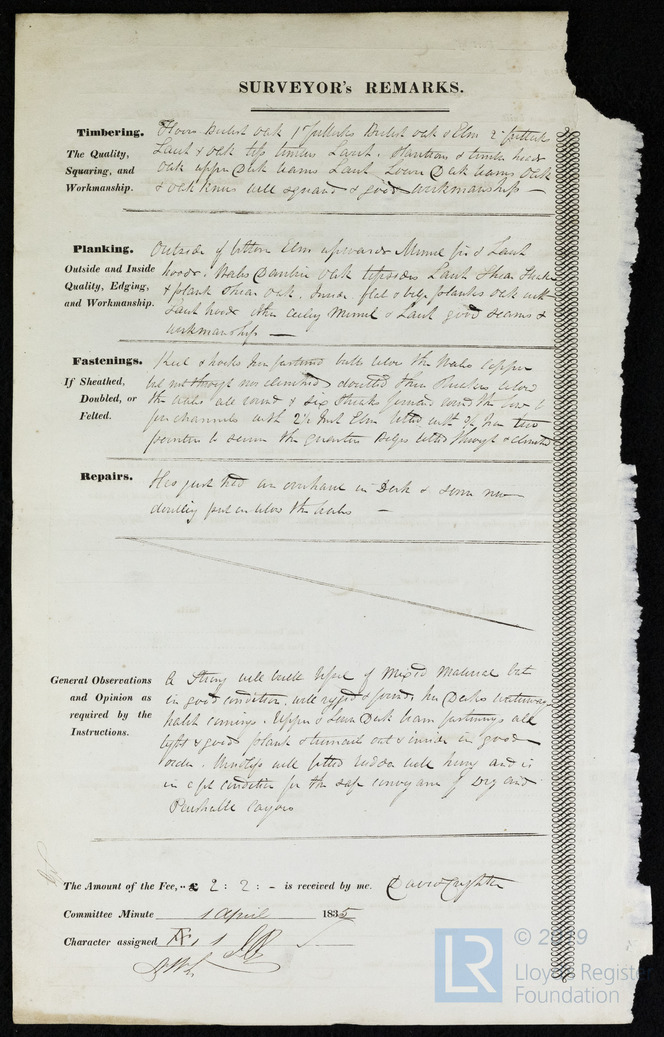 SURVEYOR's REMARKS.
Timbering.
The Quality,
Squaring, and
Workmanship.
Floors British Oak 1st Futtocks British Oak & Elm 2d futtocks
Larch & Oak top timbers Larch. Stantions & timber heads
Oak upper Deck beams Larch Lower Deck beams Oak
& Oak knees well squared & good workmanship —
Planking.
Outside and Inside
Quality, Edging,
and Workmanship.
Outside of bottom Elm upwards Memel fir & Larch
hoods. Wales Dantzic Oak topsides Larch Shear Strake
& plank Shear Oak. Inside flat & bilge planks Oak with
Larch hoods other ceiling Memel & Larch good seams &
workmanship —
Fastenings.
If Sheathed,
Doubled, or
Felted.
Keel & hooks Iron fastened butts below the Wales Copper
but not through nor clinched doubled then below
the wales all round & six Strakes round the bow to
fore channels with 2½ Inch Elm bolted with ¾ Iron two
pointers to secure the quarter bolted through & clinched
Repairs.
Has just had an overhaul in Dock & some new
doubling put on below the wales —
General Observations
and Opinion as
required by the
Instructions.
A Strong well built Vessel of Mixed Material but
in good condition, well rigged & found, her Decks waterways
hatch comings. Upper & Lower Deck beam fastenings all
tight & good plank & treenail out & inside in good
order. Windlass well fitted rudder well hung and is
in a fit condition for the safe conveyance of Dry and
Perishable Cargoes
The Amount of the Fee, £ 2 : 2 : - is received by me. David Crighton
Committee Minute 1 April 1835
Character assigned Æ 1
© 2019
LR
Lloyd's Register
Foundation